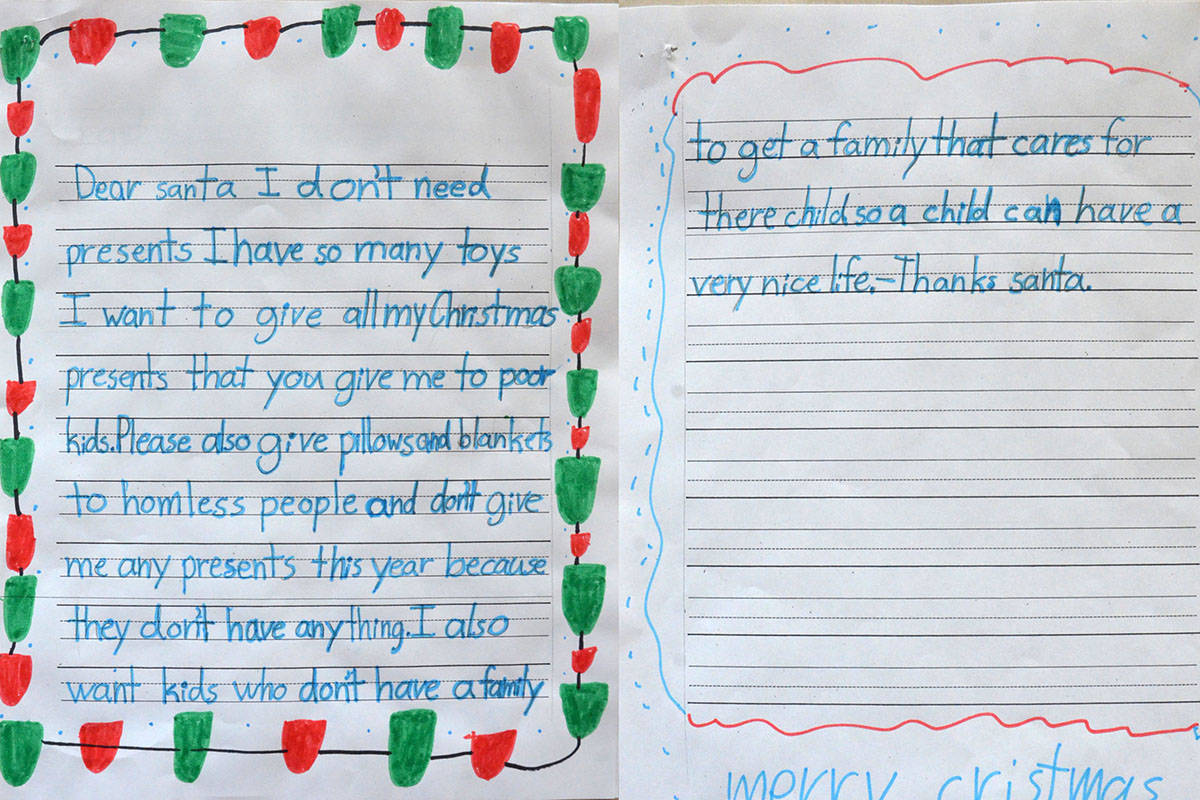 Dear santa I don't need
presents I have so many toys
I want to give all my Christmas
presents that you give me to poor
kids.Please also give pillows and blankets
to homless people and don't give
me any presents this year because
they don't have anything.I also
want kids who don't have a family
to get a family that cares for
there child so a child can have a
very nice life.-Thanks santa.
merry cristmas